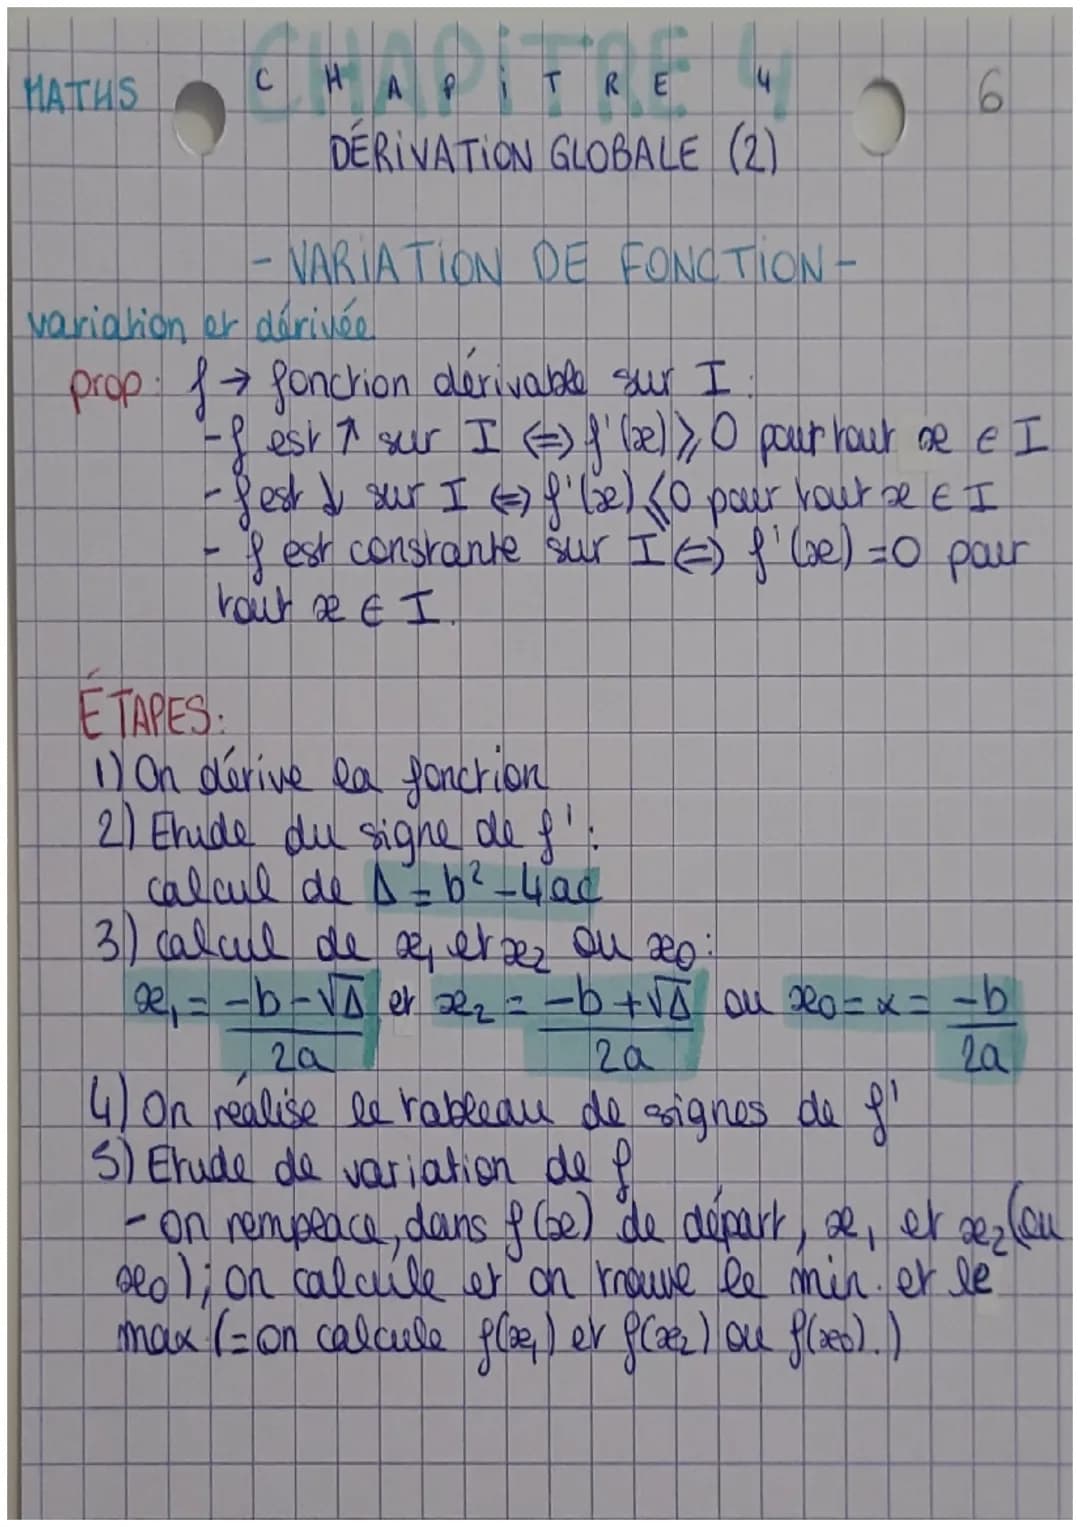 MATHS CHAPiTRE 4 6
DÉRiVATiON GLOBALE (2)
- VARiATiON DE FONCTiON -
variation et dérivée
prop : f → fonction dérivable sur I :
- f est ↑ sur I ⇔ f'(x) ⩾ 0 pour tout x ∈ I
- f est ↓ sur I ⇔ f'(x) ⩽ 0 pour tout x ∈ I
- f est constante sur I ⇔ f'(x) = 0 pour
tout x ∈ I.
ÉTAPES :
1) On dérive la fonction
2) Etude du signe de f' :
calcul de Δ = b² - 4ac
3) calcul de x₁ et x₂ ou x₀ :
x₁ = (-b - √Δ)/2a et x₂ = (-b + √Δ)/2a ou x₀ = α = -b/2a
4) On réalise le tableau de signes de f'
5) Etude de variation de f
- on remplace, dans f(x) de départ, x₁ et x₂ (ou
x₀) ; on calcule et on trouve le min. et le
max (= on calcule f(x₁) et f(x₂) ou f(x₀).)